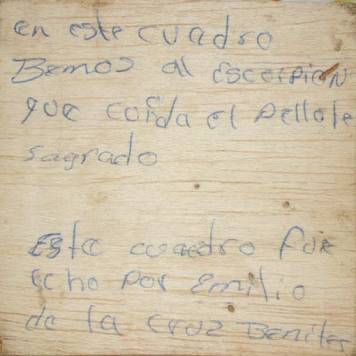 en este cuadro
Bemos al escorpion
que cuida el pellote
sagrado
Este cuadro fue
echo por Emilio
de la cruz Benites